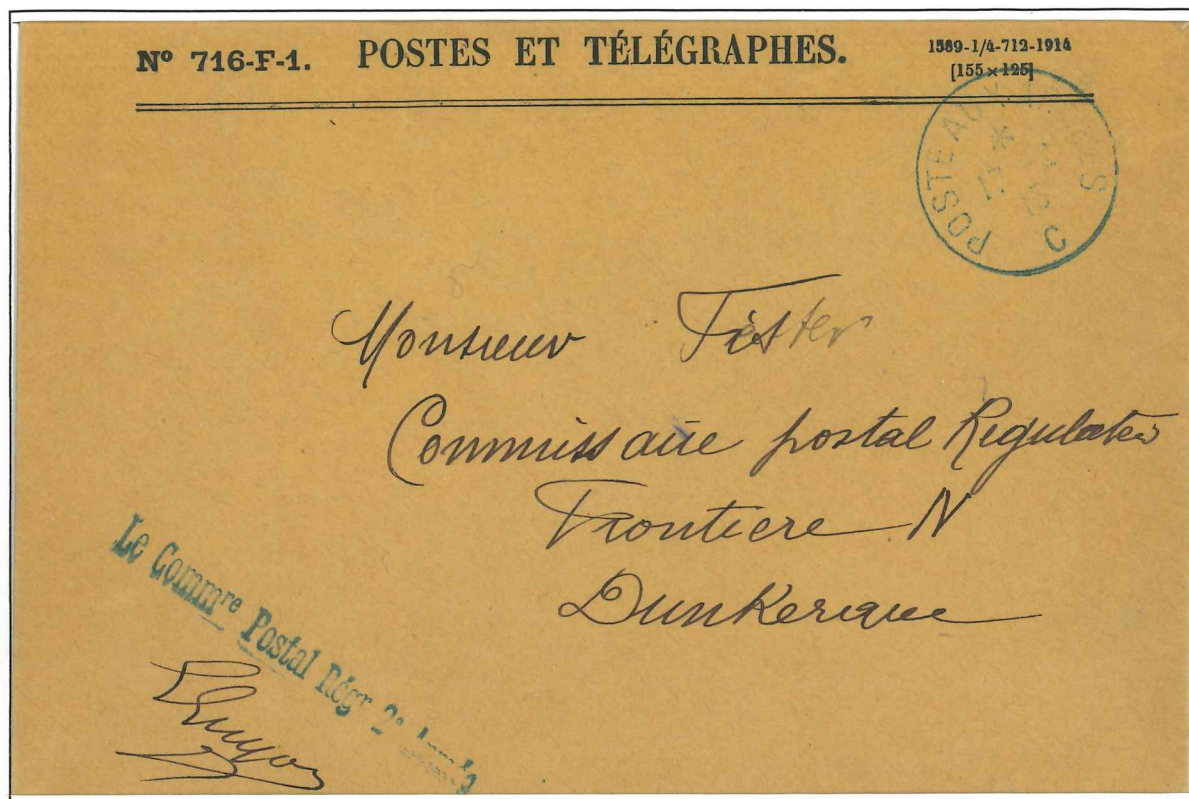 Nº 716-F-1. POSTES ET TÉLÉGRAPHES. 1589-1/4-712-1914
[155 × 125]
POSTE AUX ARMÉES
* C
Monsieur
Commissaire postal Regulateur
Frontiere N
Dunkerque
Le Commre Postal Régr 2e Armée